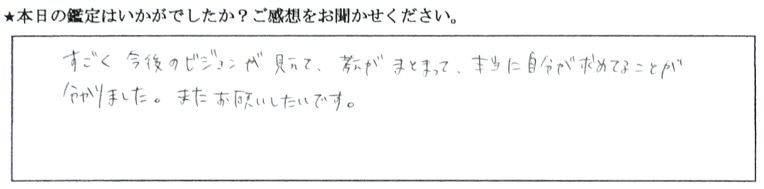 ★本日の鑑定はいかがでしたか？ご感想をお聞かせください。
すごく今後のビジョンが見えて、考えがまとまって、本当に自分が求めてることが
分かりました。またお願いしたいです。